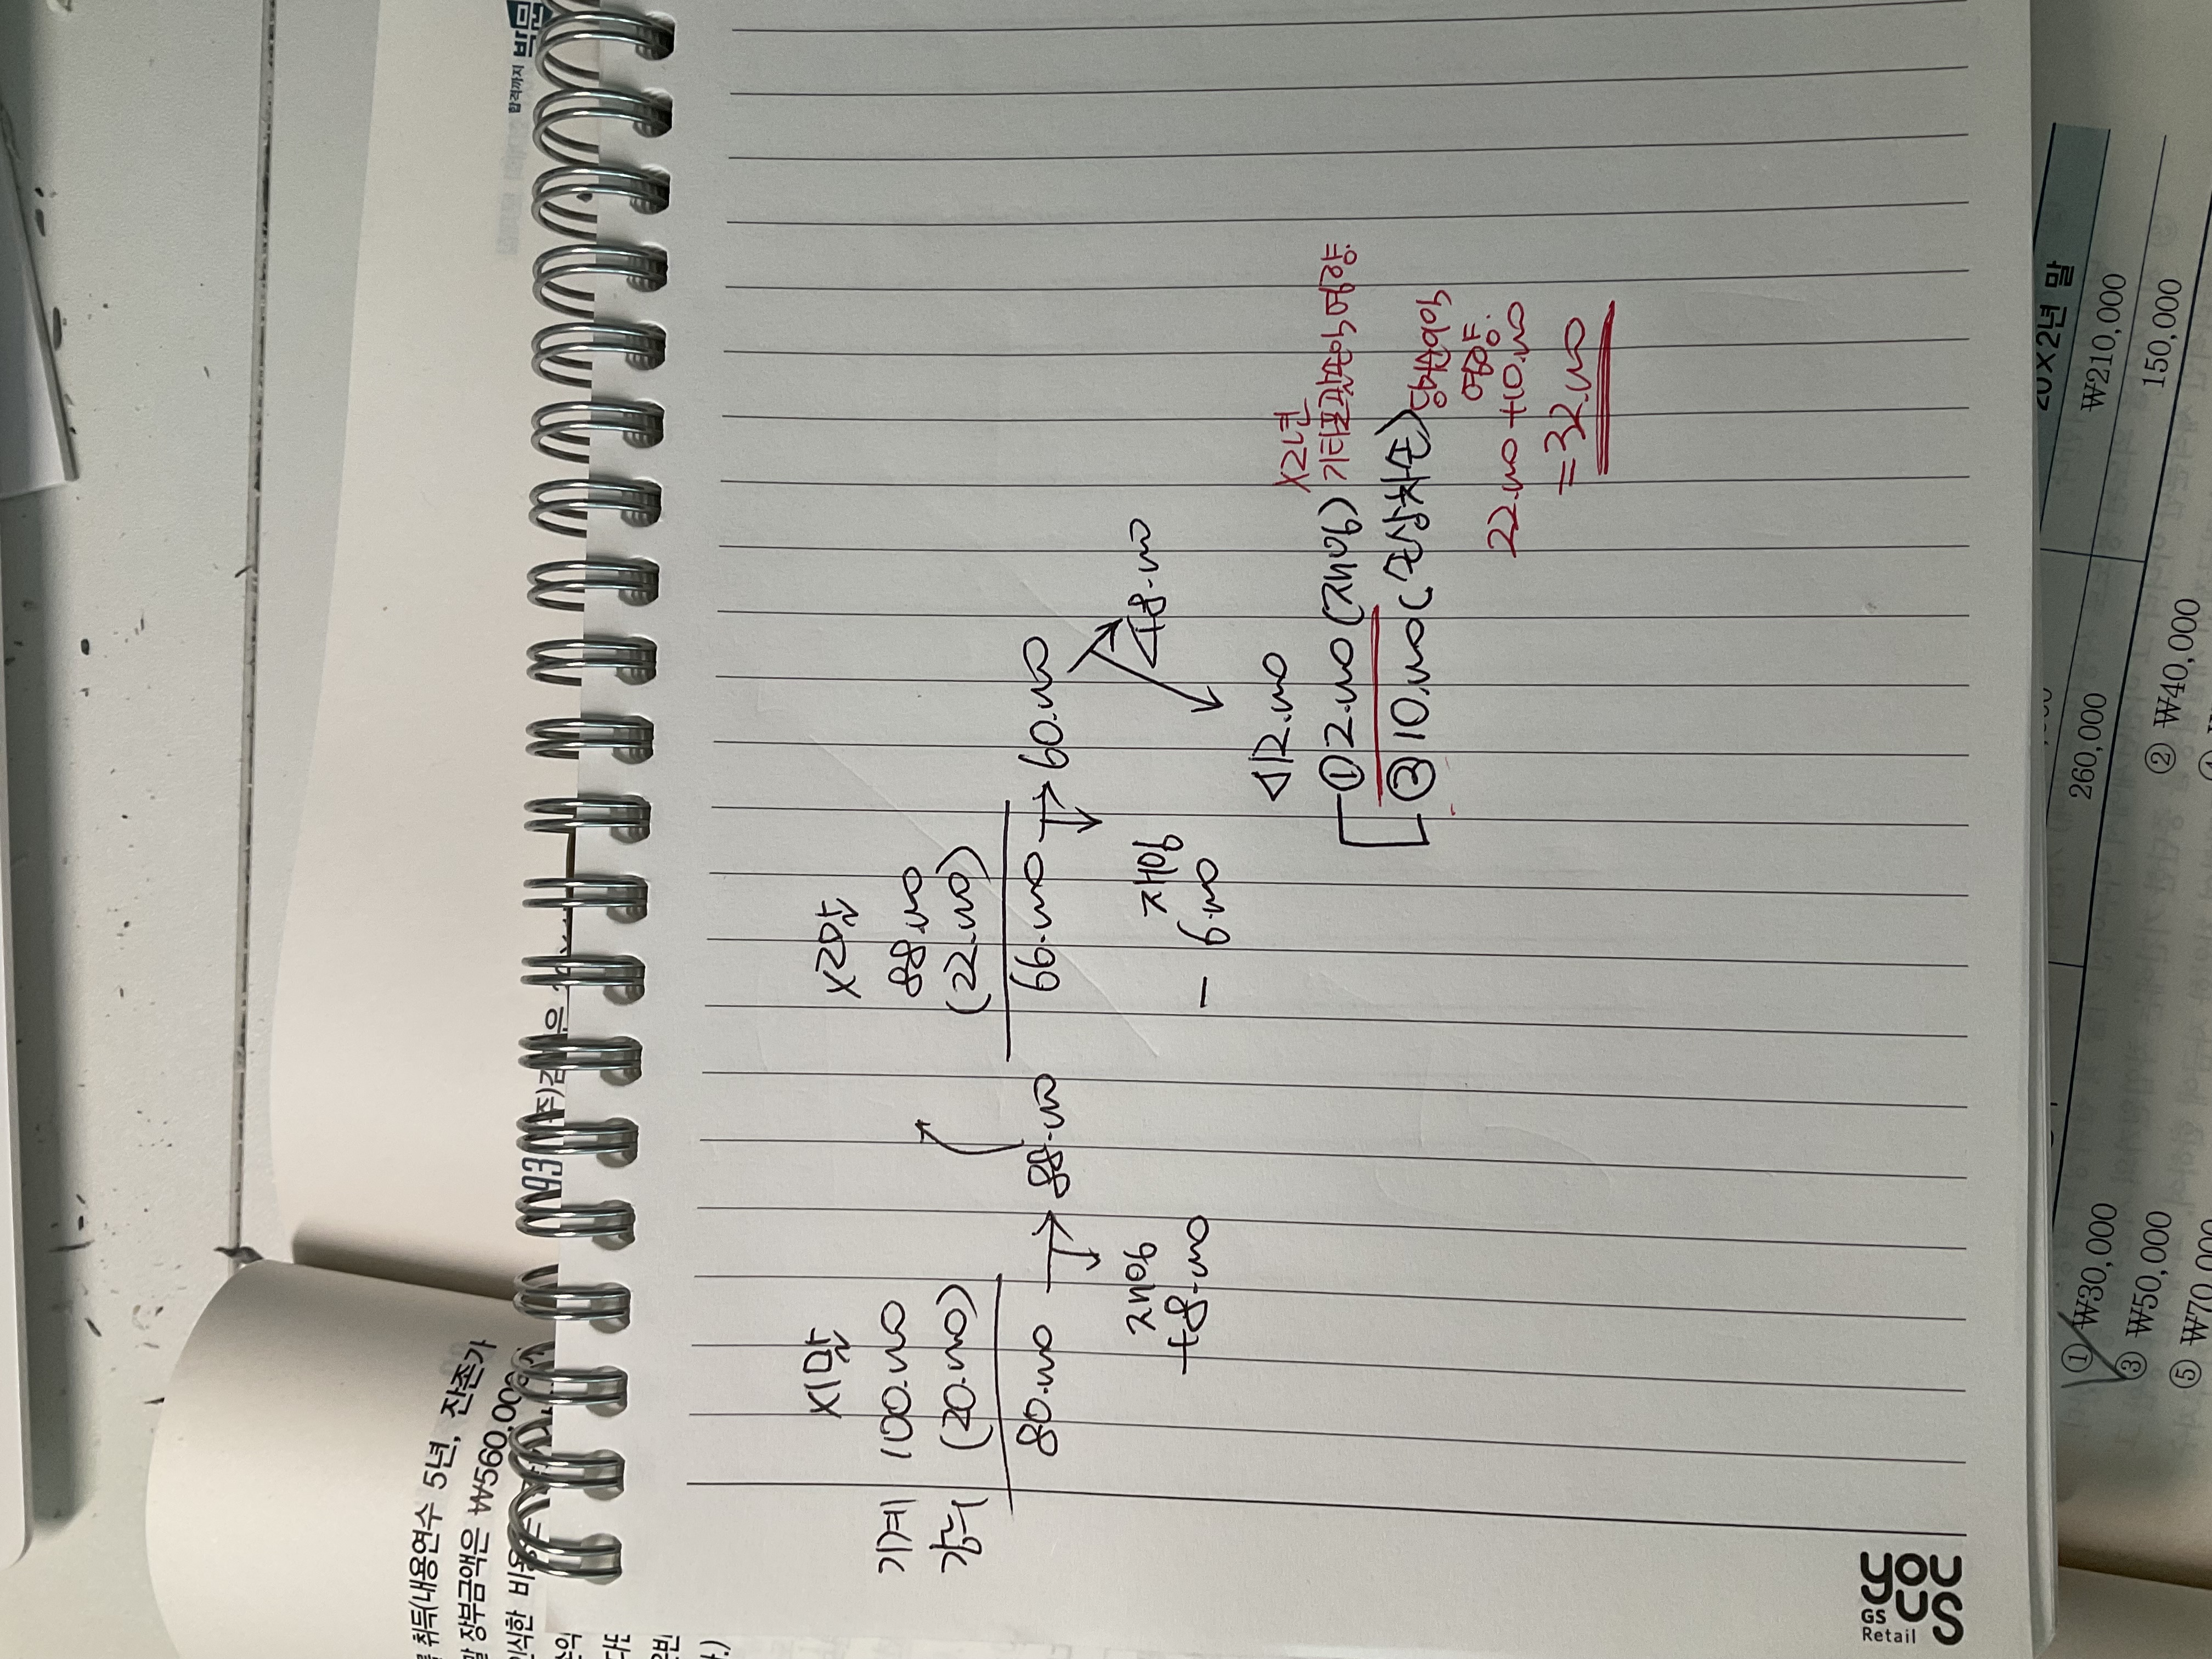 X1말
기계 100.000
감누 (20.000)
80.000 → 88.000
재잉
+8.000
X2말
88.000
(22.000)
66.000 → 60.000
재잉
- 6.000
48.000
12.000
① 2.000 (재잉)
② 10.000 (손상차손)
X2년
기타포괄손익영향.
당기손익
영향.
22.000 + 10.000
= 32.000
you
us
GS
Retail
합격까지 박문
93
취득(내용연수 5년, 잔존가
장부금액은 ₩560,000
인식한 비용
20X2년 말
₩210,000
260,000
150,000
① ₩30,000
② ₩40,000
③ ₩50,000
⑤ ₩70,000